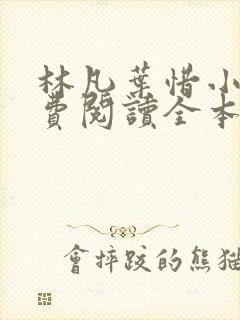 林凡葉惜小
費閱讀全本
會摔跤的熊貓